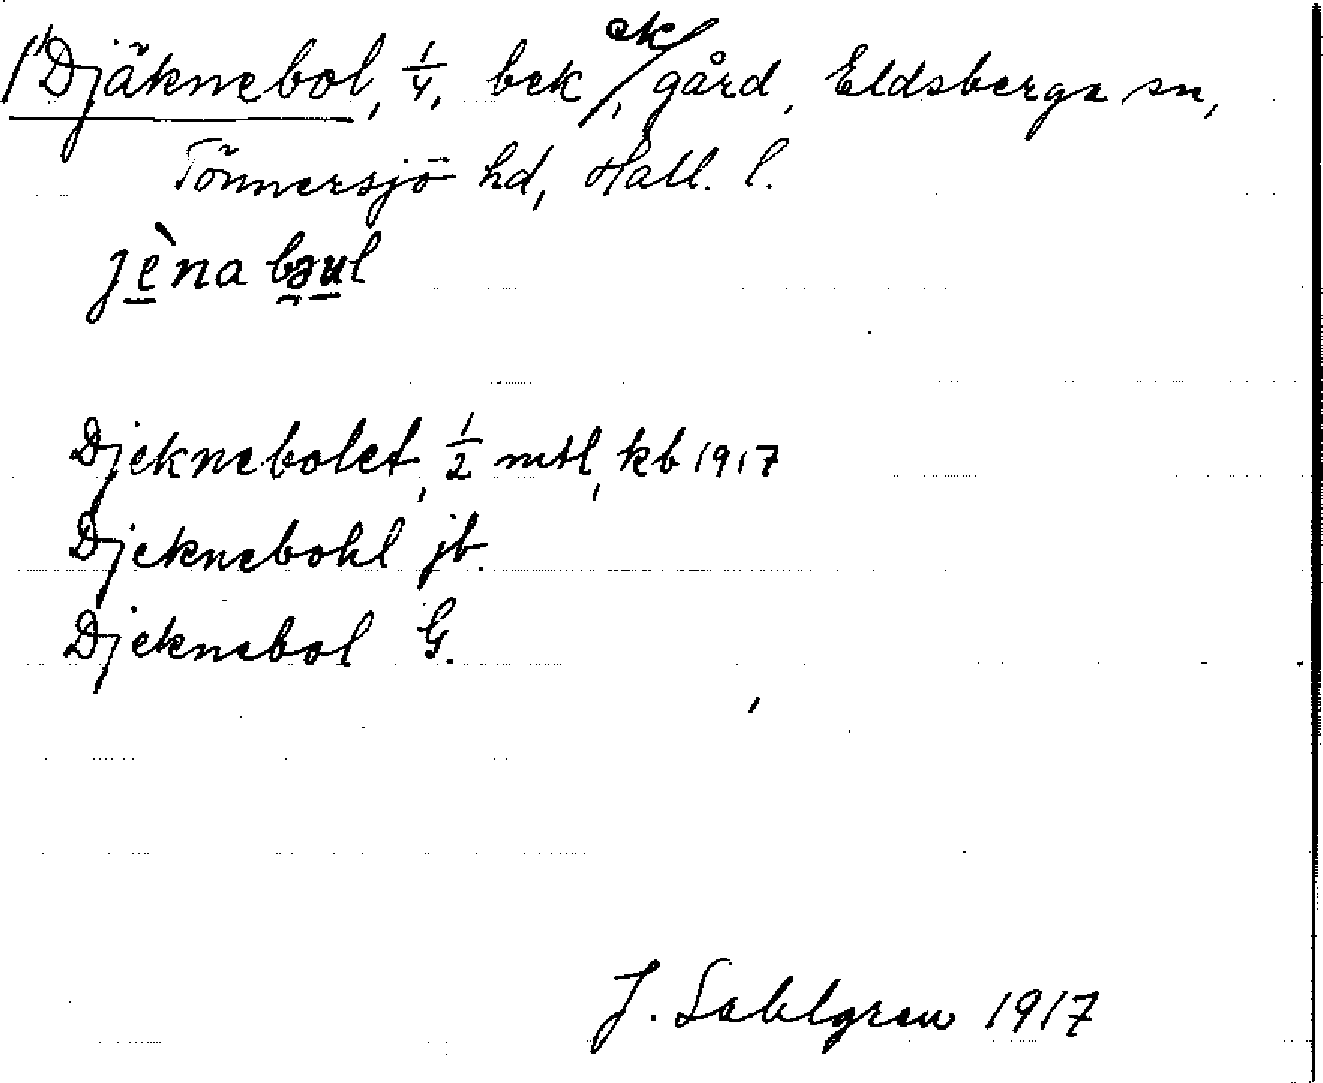 1) Djäknebol, 1/4, bek /, ek/ gård, Eldsberga sn,
Tönnersjö hd, Hall. l.
jèna bəul
Djeknebolet, 1/2 mtl, kb 1917
Djeknebohl jb.
Djeknebol G.
J. Sahlgren 1917